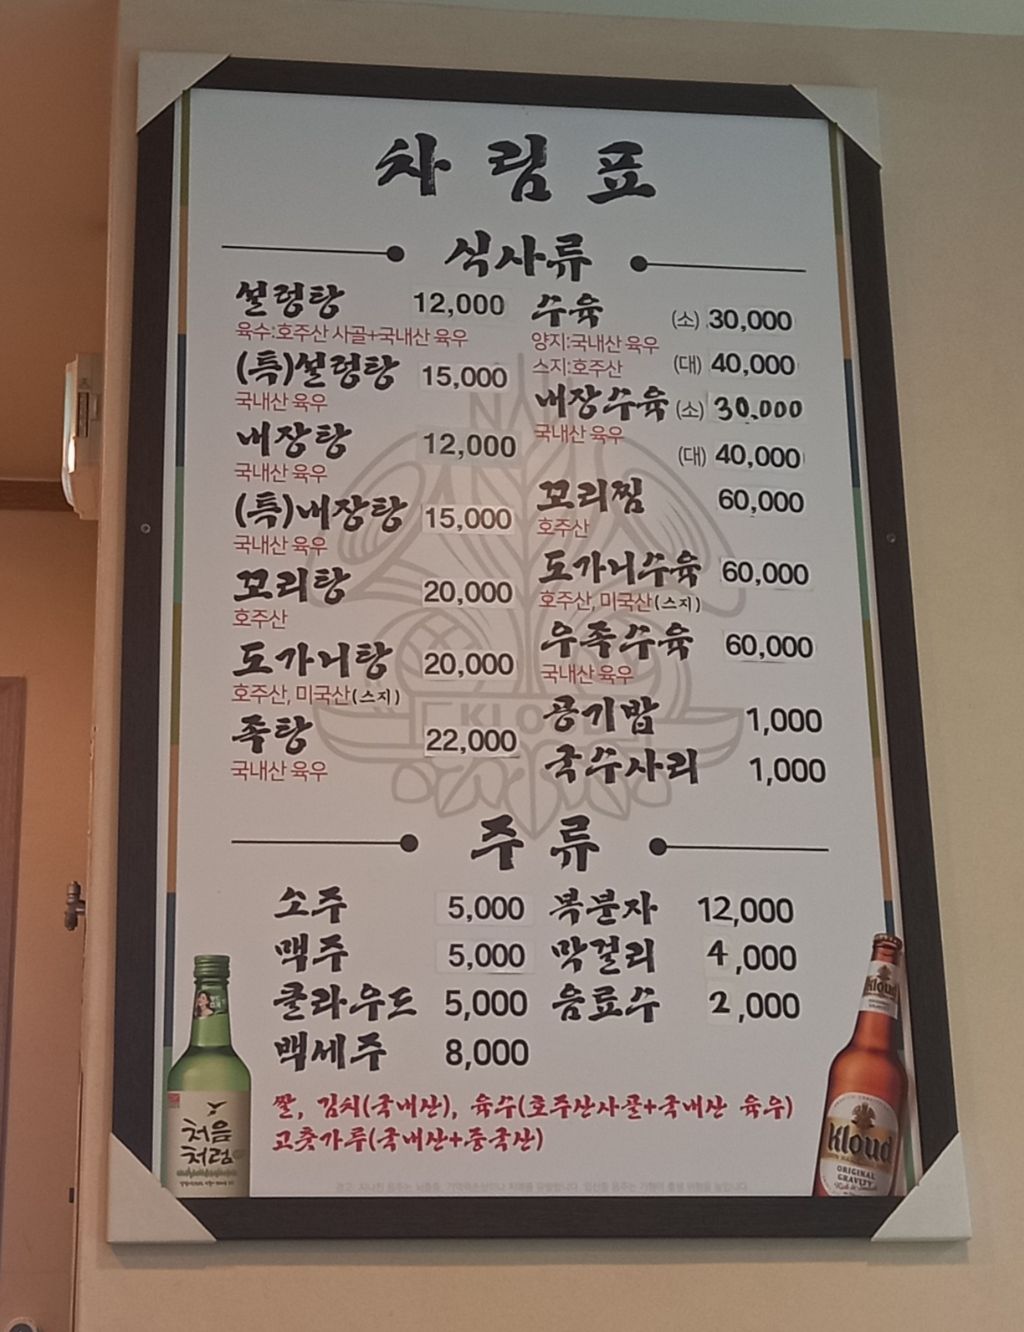 차림표
식사류
설렁탕 12,000
육수:호주산 사골+국내산 육우
(특)설렁탕 15,000
국내산 육우
내장탕 12,000
국내산 육우
(특)내장탕 15,000
국내산 육우
꼬리탕 20,000
호주산
도가니탕 20,000
호주산, 미국산(스지)
족탕 22,000
국내산 육우
수육 (소) 30,000
양지:국내산 육우
스지:호주산 (대) 40,000
내장수육 (소) 30,000
국내산 육우
(대) 40,000
꼬리찜 60,000
호주산
도가니수육 60,000
호주산, 미국산(스지)
우족수육 60,000
국내산 육우
공기밥 1,000
국수사리 1,000
주류
소주 5,000
맥주 5,000
클라우드 5,000
백세주 8,000
복분자 12,000
막걸리 4,000
음료수 2,000
쌀, 김치(국내산), 육수(호주산사골+국내산 육우)
고춧가루(국내산+중국산)
처음
처럼
Kloud
Kloud
ORIGINAL
GRAVITY